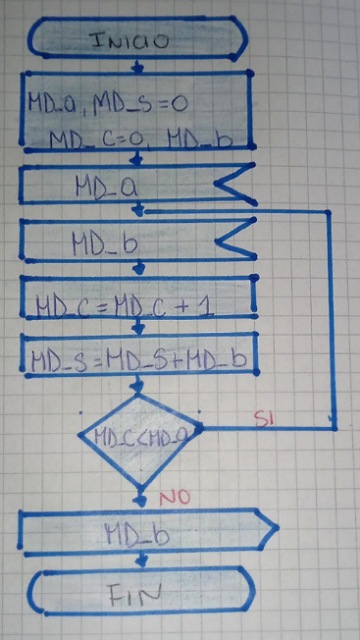 INICIO
MD_a, MD_S=0
MD_C=0, MD_b
MD_a
MD_b
MD_C=MD_C+1
MD_S=MD_S+MD_b
MD_C<MD_a
SI
NO
MD_b
FIN